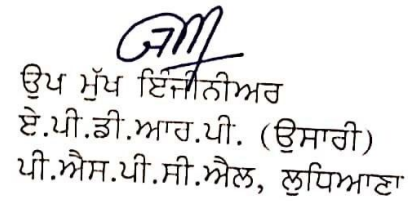 ਉਪ ਮੁੱਖ ਇੰਜੀਨੀਅਰ
ਏ.ਪੀ.ਡੀ.ਆਰ.ਪੀ. (ਉਸਾਰੀ)
ਪੀ.ਐਸ.ਪੀ.ਸੀ.ਐਲ, ਲੁਧਿਆਣਾ